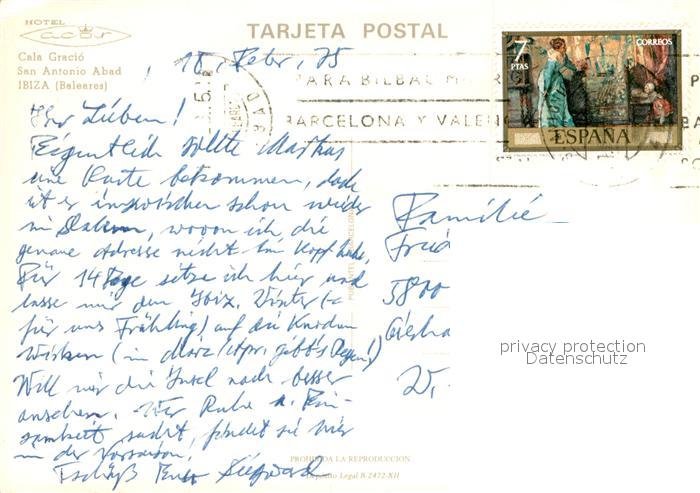 HOTEL
acor
Cala Gració
San Antonio Abad
IBIZA (Baleares)
TARJETA POSTAL
7
PTAS
CORREOS
ESPAÑA
PARA BILBAO
BARCELONA Y VALEN
18. Febr. 75
Ihr Lieben!
Eigentlich sollte Markus
eine Karte bekommen, doch
ist er inzwischen schon wieder
in Dakum, wovon ich die
genaue Adresse nicht im Kopf habe.
Für 14 Tage sitze ich hier und
lasse mir den Ibiz. Winter (=
für uns Frühling) auf die Knochen
wirken (in März/Apr. gibt's Regen!)
Will mir die Insel noch besser
ansehen. Wer Ruhe u. Ein-
samkeit sucht, findet sie hier
in der Vorsaison.
Tschüß Euer Siegward
Familie
Fried
5800
D.
PROHIBIDA LA REPRODUCCION
Depósito Legal B 2472-XII
privacy protection
Datenschutz